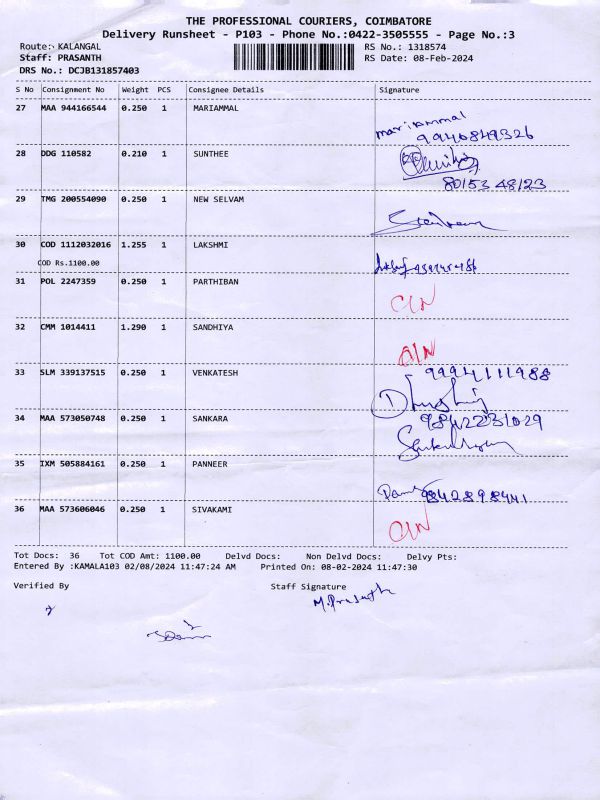 THE PROFESSIONAL COURIERS, COIMBATORE
Delivery Runsheet - P103 - Phone No.:0422-3505555 - Page No.:3
Route: KALANGAL RS No.: 1318574
Staff: PRASANTH RS Date: 08-Feb-2024
DRS No.: DCJB131857403
S No Consignment No Weight PCS Consignee Details Signature
27 MAA 944166544 0.250 1 MARIAMMAL mariammal
9940849326
28 DDG 110582 0.210 1 SUNTHEE
80153 48123
29 TMG 200554090 0.250 1 NEW SELVAM
30 COD 1112032016 1.255 1 LAKSHMI
COD Rs.1100.00
31 POL 2247359 0.250 1 PARTHIBAN
32 CMM 1014411 1.290 1 SANDHIYA
33 SLM 339137515 0.250 1 VENKATESH 9994111988
34 MAA 573050748 0.250 1 SANKARA 9842231029
35 IXM 505884161 0.250 1 PANNEER
9842898441
36 MAA 573606046 0.250 1 SIVAKAMI
Tot Docs: 36 Tot COD Amt: 1100.00 Delvd Docs: Non Delvd Docs: Delvy Pts:
Entered By :KAMALA103 02/08/2024 11:47:24 AM Printed On: 08-02-2024 11:47:30
Verified By Staff Signature
M.Prasanth